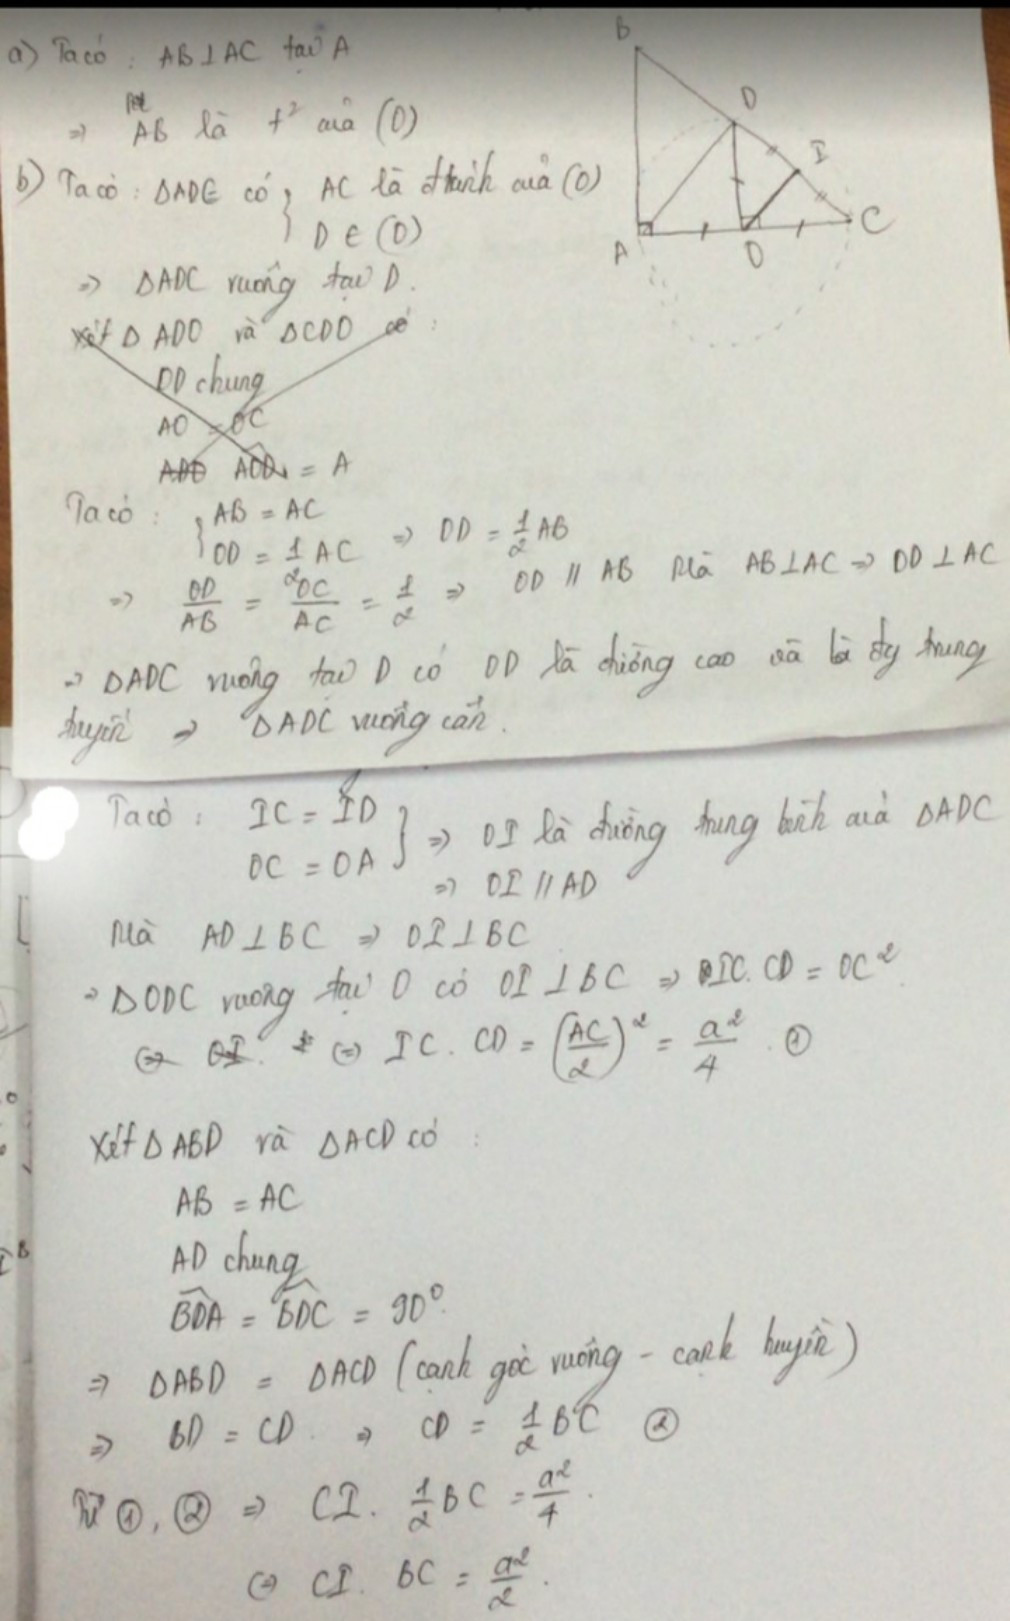 a) Ta có : AB⊥AC tại A
⇒ AB là t² của (O)
b) Ta có : ΔADC có { AC là đkính của (O)
D ∈ (O)
⇒ ΔADC vuông tại D.
Xét Δ ADO và ΔCDO có :
OD chung
AO = OC
= A
Ta có : { AB = AC
OD = 1/2 AC ⇒ OD = 1/2 AB
⇒ OD/AB = OC/AC = 1/2 ⇒ OD // AB Mà AB⊥AC ⇒ OD ⊥ AC
⇒ ΔADC vuông tại D có OD là đường cao và là trung
tuyến ⇒ ΔADC vuông cân.
B
D
I
A
O
C
Ta có : IC = ID
OC = OA } ⇒ OI là đường trung bình của ΔADC
⇒ OI // AD
Mà AD ⊥ BC ⇒ OI ⊥ BC
⇒ ΔODC vuông tại O có OI ⊥ BC ⇒ IC. CD = OC²
⇔ IC . CD = (AC/2)² = a²/4 . ①
Xét Δ ABD và ΔACD có :
AB = AC
AD chung
B̂DA = B̂DC = 90°.
⇒ ΔABD = ΔACD (cạnh góc vuông - cạnh huyền)
⇒ BD = CD. ⇒ CD = 1/2 BC ②
Từ ①, ② ⇒ CI. 1/2 BC = a²/4 .
⇔ CI. BC = a²/2 .